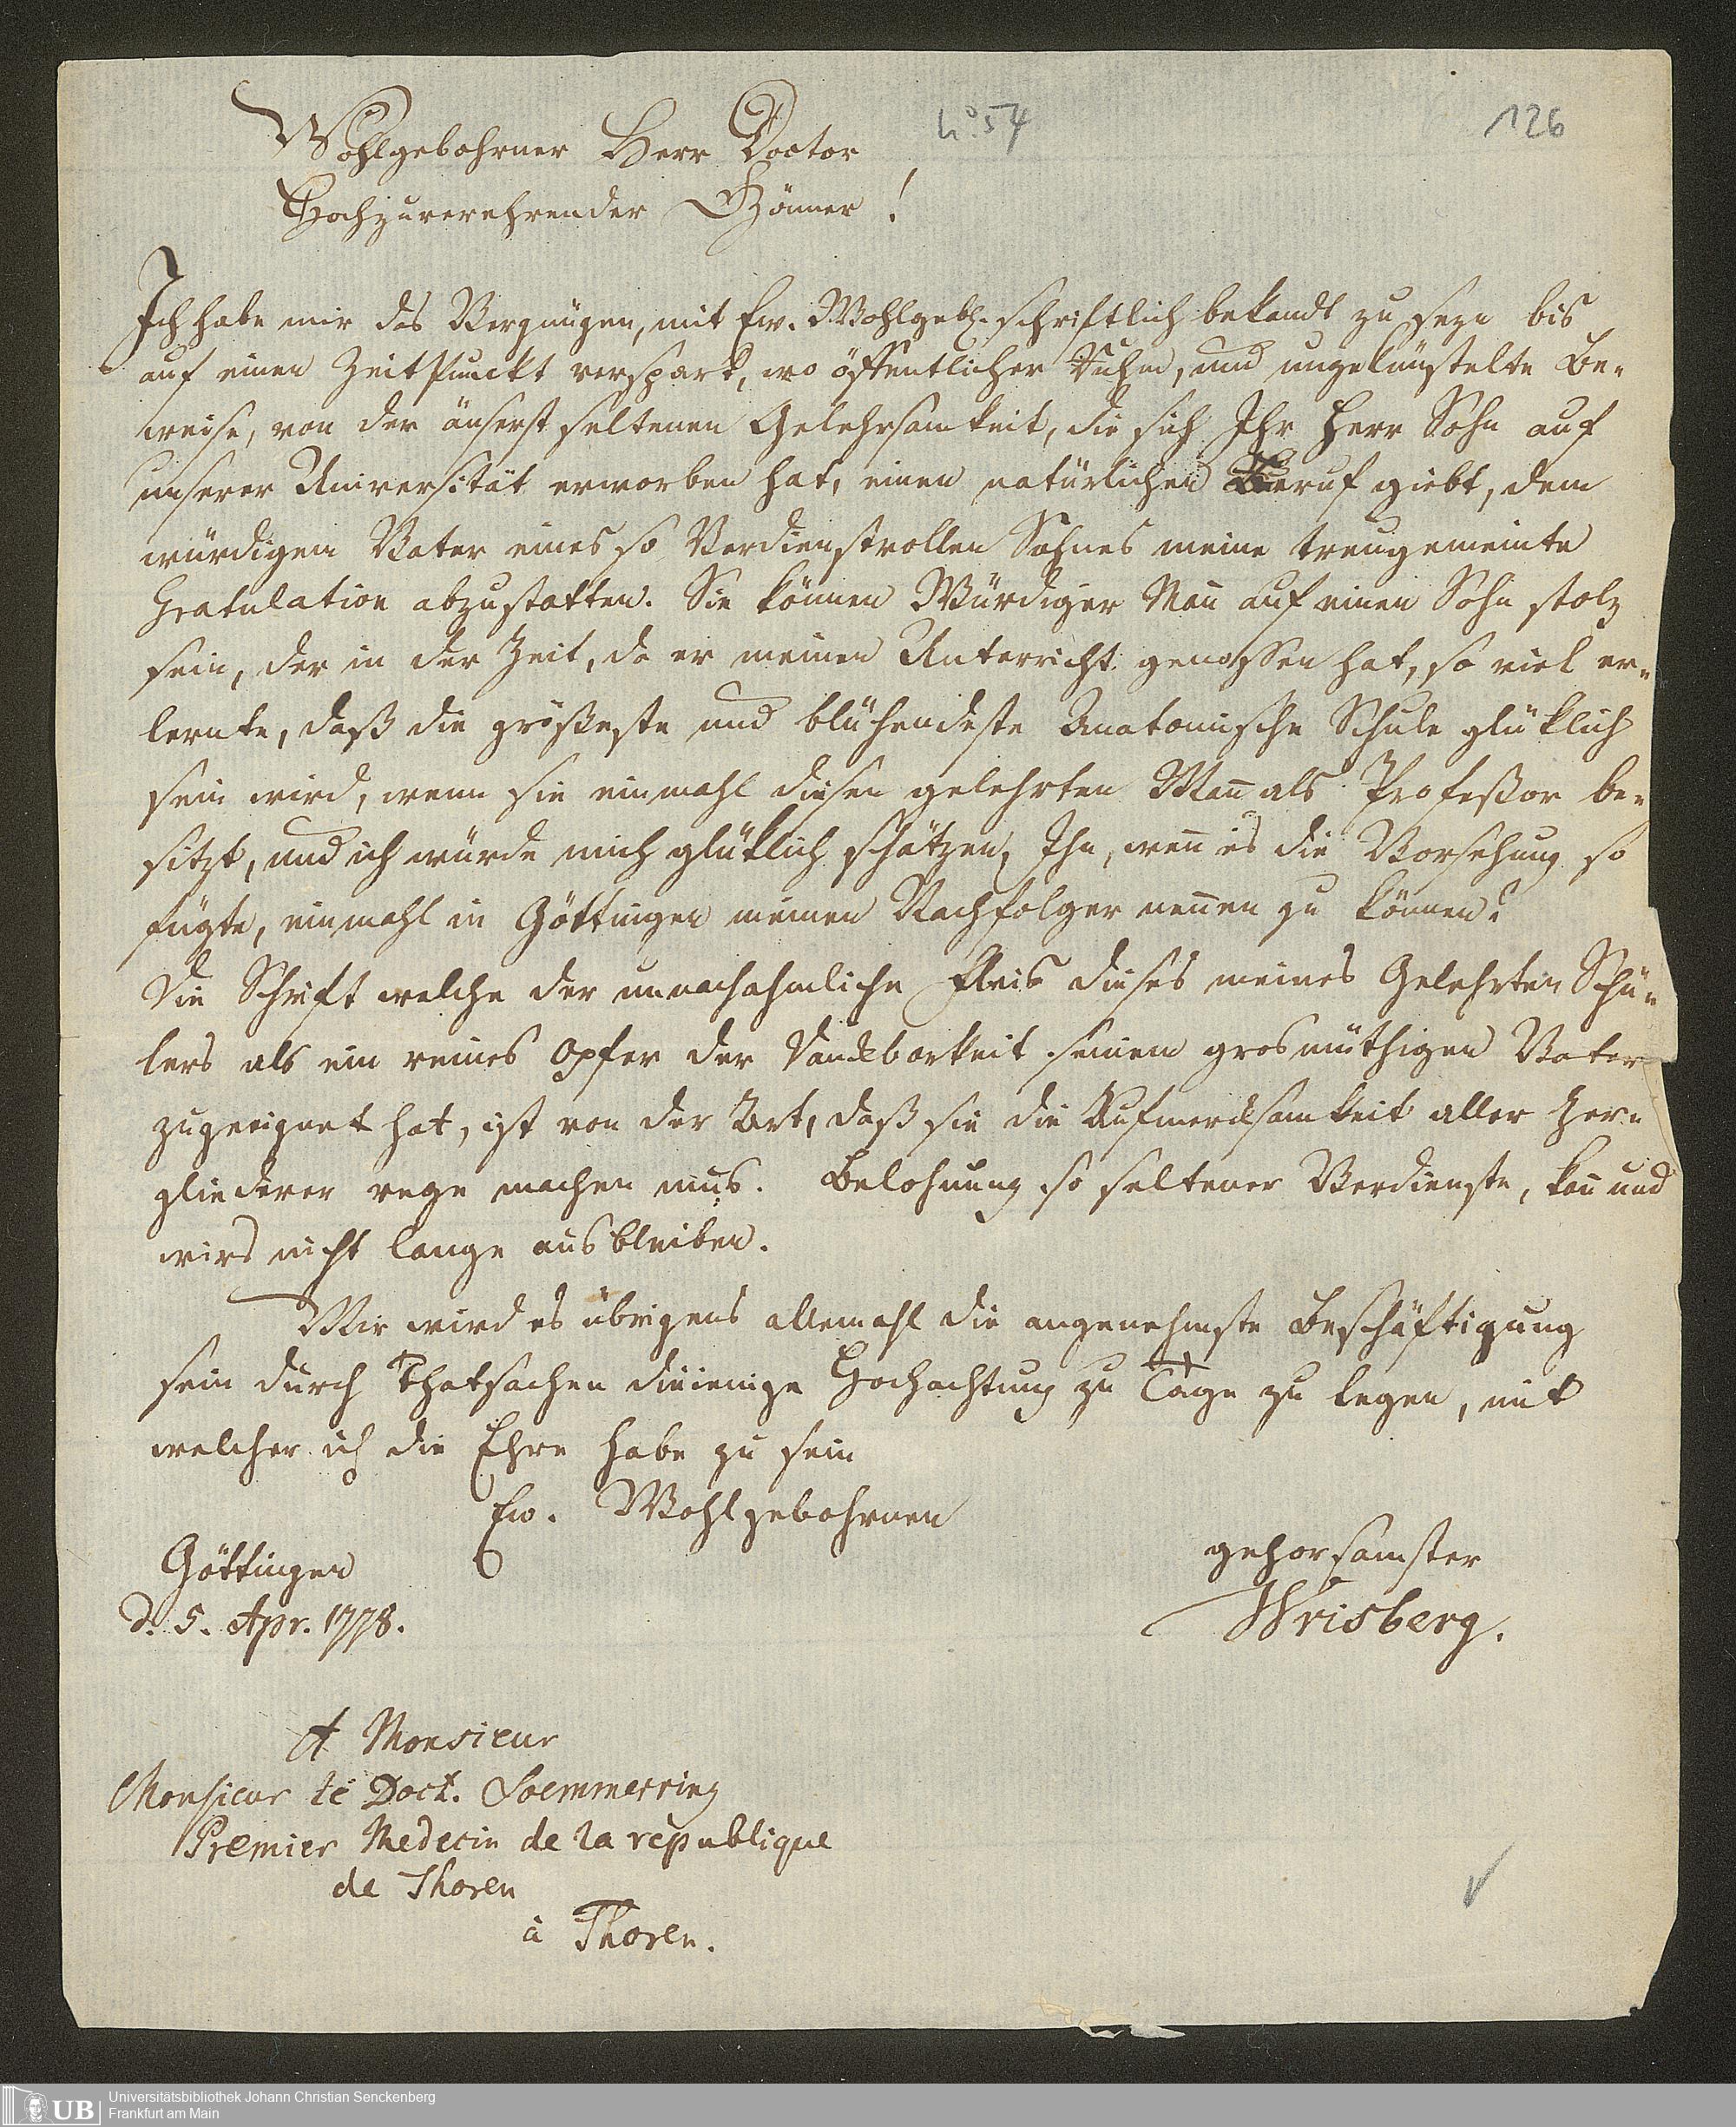 Wohlgebohrner Herr Doctor
no. 54
126
Hochzuverehrender Gönner!
Ich habe mir das Vergnügen, mit Ew. Wohlgebh. schriftlich bekandt zu seyn bis
auf einen Zeitpunckt verspart, wo öffentlicher Ruhm, und ungekünstelte Be-
weise, von der äuserst seltenen Gelehrsamkeit, die sich Ihr Herr Sohn auf
unserer Universität erworben hat, einen natürlichen Beruf giebt, dem
würdigem Vater eines so Verdienstvollen Sohnes meine treugemeinte
Gratulation abzustatten. Sie können Würdiger Man̄ auf einen Sohn stolz
sein, der in der Zeit, da er meinen Unterricht genossen hat, so viel er-
lernte, daß die größeste und blühendeste Anatomische Schule glüklich
sein wird, wenn sie einmahl diesen gelehrten Man̄ als Profeßor be-
sitzt, und ich würde mich glüklich schätzen, Ihn, wen̄ es die Vorsehung so
fügte, einmahl in Göttingen meinen Nachfolger nen̄en zu können!
Die Schrift welche der unnachahmliche Fleis dieses meines Gelehrten Schü-
lers als ein reines Opfer der Danckbarkeit seinem grosmüthigen Vater
zugeeignet hat, ist von der Art, daß sie die Aufmercksamkeit aller Zer-
gliederer rege machen mus. Belohnung so seltener Verdienste, kan̄ und
wird nicht lange ausbleiben.
Mir wird es übrigens allemahl die angenehmste Beschäftigung
sein durch Thatsachen dieienige Hochachtung zu Tage zu legen, mit
welcher ich die Ehre habe zu sein
Ew. Wohlgebohrnen
Göttingen
gehorsamster
d. 5. Apr. 1778.
Wrisberg.
A Monsieur
Monsieur le Doct. Soemmerring
Premier Medecin de la rèpublique
de Thoren
à Thoren.
UB
Universitätsbibliothek Johann Christian Senckenberg
Frankfurt am Main